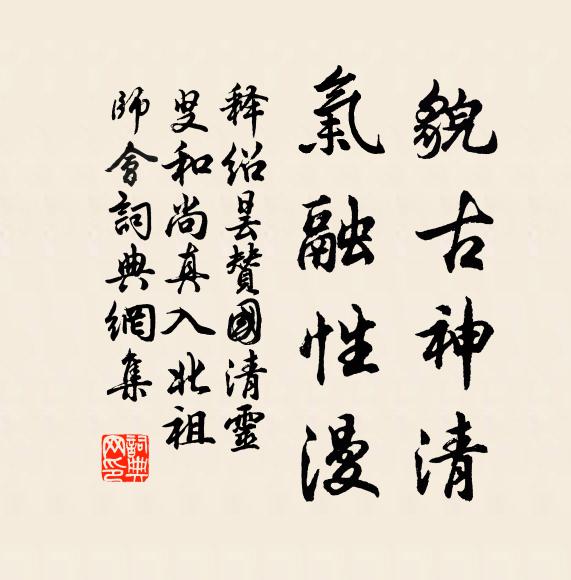 貌古神清
氣融性漫
释绍昙赞國清靈
叟和尚真入北祖
師會詞典網集
詞典网印